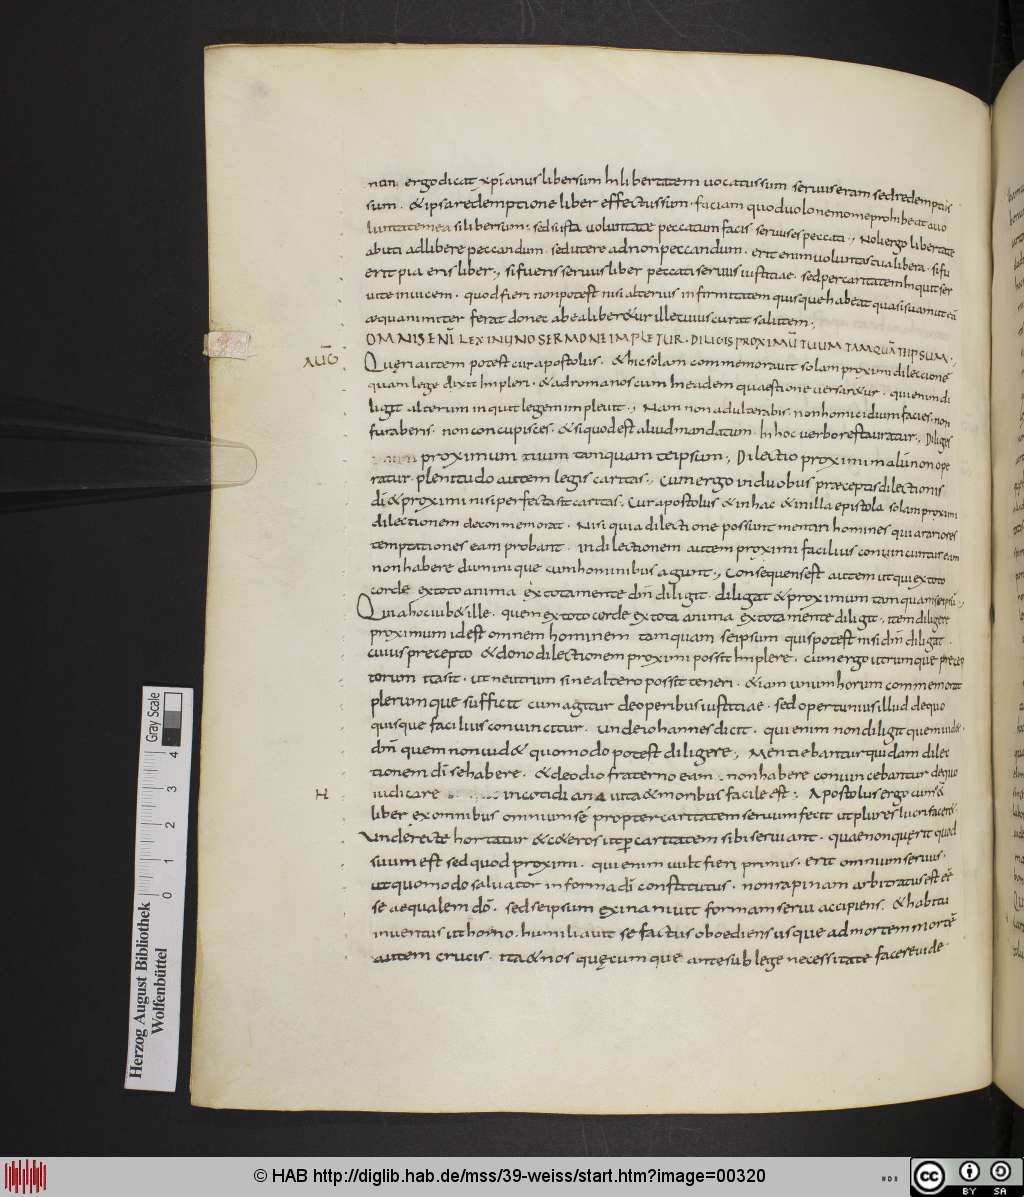 non ergo dicat xp̄ianus liber sum in libertatem uocatus sum seruus eram sed redemptus
sum · & ipsa redemptione liber effectus sum · faciam quod uolo nemo me prohibeat a uo
luntate mea si liber sum · sed si ista uoluntate peccatum facis seruus es peccati · Noli ergo libertate
abuti ad libere peccandum · sed utere ad non peccandum · erit enim uoluntas tua libera · si fu
erit pia eris liber · si fueris seruus liber peccati seruus iustitiae · sed per caritatem inquit ser
uite inuicem · quod fieri non potest nisi alterius infirmitatem quisque habeat quasi suam ut eā
aequanimiter ferat donec ab ea liber&ur ille cuius curat salutem ·
OMNIS ENĪ LEX IN UNO SERMONE IMPLETUR · DILIGIS PROXIMŪ TUUM TAMQUĀ TEIPSUM ·
AUG Quęri autem potest cur apostolus · & hic solam commemorauit solam proximi dileccione
quam lege dixit impleri · & ad romanos cum in eadem quaestione uersar&ur · qui enim di
ligit alterum inquit legem impleuit · Nam non adulterabis · non homicidium facies · non
furaberis · non concupisces · & si quod est aliud mandatum · in hoc uerbo restauratur · Diliges
proximum tuum tamquam teipsum · Dilectio proximi malū non ope
ratur plenitudo autem legis caritas · cum ergo in duobus praeceptis dilectionis
dī & proximi nisi perfecta sit caritas · Cur apostolus & in hac & in illa epistola solam proximi
dilectionem deconmemorat · Nisi quia dilectione possunt mentiri homines qui a rariores
temptationes eam probant · in dilectionem autem proximi facilius conuincuntur eam
non habere dum inique cum hominibus agunt · Consequens est autem ut qui ex toto
corde ex tota anima ex tota mente dm̄ diligit · diligat & proximum tamquam seipsū ·
Quia hoc iub& ille · quem ex toto corde ex tota anima ex tota mente diligit · item diligere
proximum id est omnem hominem tamquam seipsum quis potest nisi dm̄ diligat ·
cuius precepto & dono dilectionem proximi possit implere · cum ergo utrumque precep
torum ita sit · ut neutrum sine altero possit teneri · & iam unum horum commemorat
plerumque sufficit cum agitur de operibus iustitiae · sed oportunius illud de quo
quisque facilius conuincitur · unde iohannes dicit · qui enim non diligit quem uid&
dm̄ quem non uid& quomodo potest diligere · Mentiebantur quidam dilec
tionem dī se habere · & de odio fraterno eam · non habere conuincebantur de quo
H iudicare in cotidiana uita & moribus facile est · Apostolus ergo cum &
liber ex omnibus omnium sé propter caritatem seruum fecit ut plures lucrifaceret ·
unde recte hortatur & c&eros ut ꝑ caritatem sibi seruiant · quae non quęrit quod
suum est sed quod proximi · qui enim uult fieri primus · erit omnium seruus ·
ut quomodo saluator in forma dī constitutus · non rapinam arbitratus est eē
se aequalem dō · sed seipsum exinaniuit formam serui accipiens · & habitu
inuentus ut homo · humiliauit se factus oboediens usque ad mortem mortē
autem crucis · ita & nos quęcumque ante sub lege necessitate facere uide
Herzog August Bibliothek
Wolfenbüttel
0 1 2 3 4
Gray Scale
© HAB http://diglib.hab.de/mss/39-weiss/start.htm?image=00320
cc BY SA